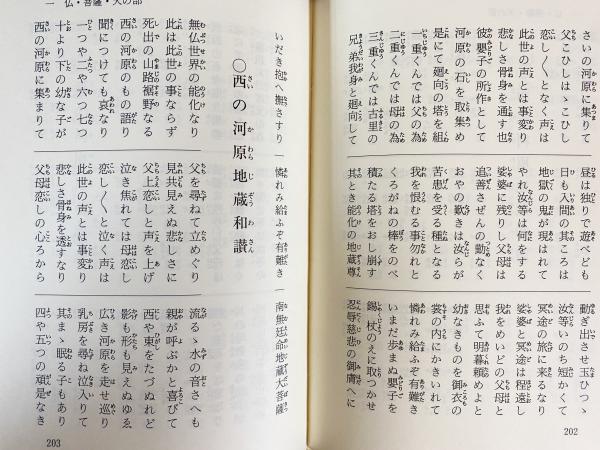 さいの河原に集りて
父こひしはゝこひし
恋し〳〵となく声は
此世の声とは事変り
悲しき骨身を通す也
彼嬰子の所作として
河原の石を取集め
是にて廻向の塔を組
一重くんでは父の為
二重くんでは母の為
三重くんでは古里の
兄弟我身と廻向して
昼は独りで遊べども
日も入間の其ころは
地獄の鬼が現はれて
やれ汝等は何をする
娑婆に残りし父母は
追善さぜんの勤なく
おやの歎きは汝らが
苦患を受る種となる
我を恨むる事勿れと
くろがねの棒をのべ
積たる塔をおし崩す
其とき能化の地蔵尊
動ぎ出させ玉ひつゝ
汝等いのち短かくて
冥途の旅に来るなり
娑婆と冥途は程遠し
我をめいどの父母と
思ふて明暮頼めよと
幼なきものを御衣の
裳の内にかきいれて
憐れみ給ふぞ有難き
いまだ歩まぬ嬰子を
錫杖のえに取つかせ
忍辱慈悲の御膚へに
202
一 仏・菩薩・天の部
いだき抱へ撫さすり
憐れみ給ふぞ有難き
南無延命地蔵大菩薩
○西の河原地蔵和讃
無仏世界の能化なり
此は此世の事ならず
死出の山路裾野なる
西の河原のもの語り
聞につけても哀なり
一つや二や六つ七つ
十より下の幼な子が
西の河原に集まりて
父を尋ねて立めぐり
見れ共見えぬ悲しさに
父上恋しと声を上げ
泣き焦れては母恋し
恋し〳〵と泣く声は
此世の声とは事変り
悲しさ骨身を透すなり
父母恋しの心ろから
流るゝ水の音さへも
親が呼ぶかと喜びて
西や東をたづぬれど
影も形も見えぬゆゑ
広き河原を走せ巡り
乳房を尋ね泣入りて
其まゝ眠る子もあり
四や五つの頑是なき
203